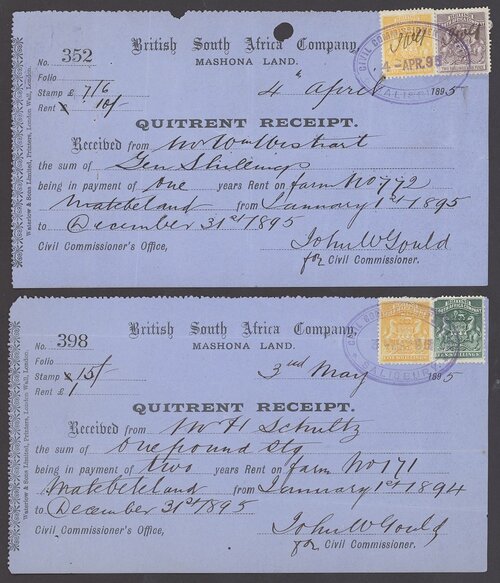 British South Africa Company.
MASHONA LAND.
No. 352
Folio
Stamp £ 7/6
Rent £ 10/-
4th April 1895
QUITRENT RECEIPT.
Received from Mr Wm
the sum of Ten Shillings
being in payment of One years Rent on farm No 772
Matebeland from January 1st 1895
to December 31st 1895
Civil Commissioner's Office,
John W Gould
for Civil Commissioner.
Waterlow & Sons Limited, Printers, London Wall, London.
4 -APR.95
British South Africa Company
MASHONA LAND.
No. 398
Folio
Stamp £ 15/-
Rent
3rd May 1895
QUITRENT RECEIPT.
Received from Mr H Schultz
the sum of One pound Stg
being in payment of two years Rent on farm No 171
Matebeleland from January 1st 1894
to December 31st 1895
Civil Commissioner's Office,
John W Gould
for Civil Commissioner.
Waterlow & Sons Limited, Printers, London Wall, London.
TEN SHILLINGS